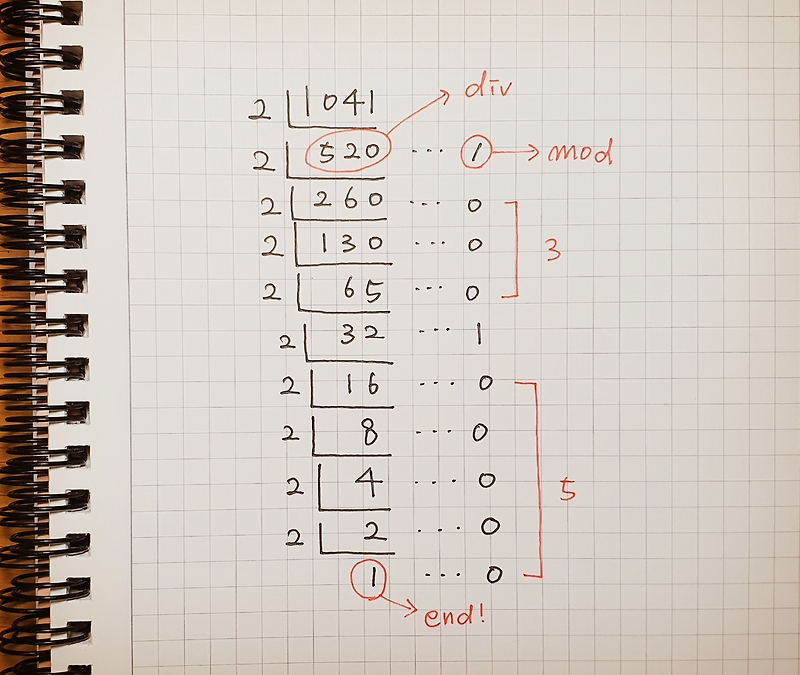 2 1041 div
2 520 ... 1 mod
2 260 ... 0
2 130 ... 0 3
2 65 ... 0
2 32 ... 1
2 16 ... 0
2 8 ... 0
2 4 ... 0 5
2 2 ... 0
1 ... 0
end!